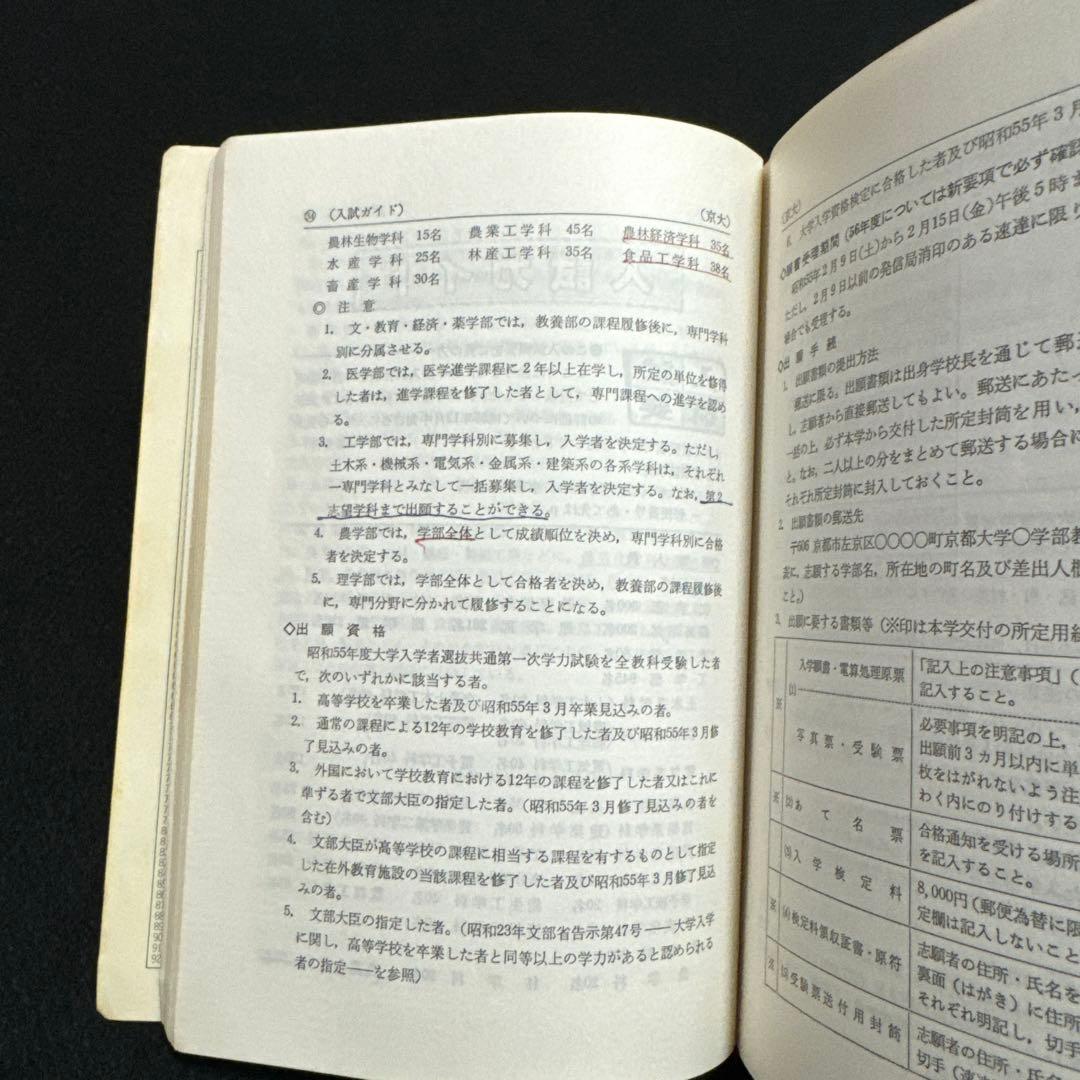 (入試ガイド) (京大)
農林生物学科 15名 農業工学科 45名 農林経済学科 35名
水産学科 25名 林産工学科 35名 食品工学科 38名
畜産学科 30名
◎ 注意
1. 文・教育・経済・薬学部では，教養部の課程履修後に，専門学科
別に分属させる。
2. 医学部では，医学進学課程に2年以上在学し，所定の単位を修得
した者は，進学課程を修了した者として，専門課程への進学を認め
る。
3. 工学部では，専門学科別に募集し，入学者を決定する。ただし，
土木系・機械系・電気系・金属系・建築系の各系学科は，それぞれ
一専門学科とみなして一括募集し，入学者を決定する。なお，第2
志望学科まで出願することができる。
4. 農学部では，学部全体として成績順位を決め，専門学科別に合格
者を決定する。
5. 理学部では，学部全体として合格者を決め，教養部の課程履修後
に，専門分野に分かれて履修することになる。
◇出願資格
昭和55年度大学入学者選抜共通第一次学力試験を全教科受験した者
で，次のいずれかに該当する者。
1. 高等学校を卒業した者及び昭和55年3月卒業見込みの者。
2. 通常の課程による12年の学校教育を修了した者及び昭和55年3月修
了見込みの者。
3. 外国において学校教育における12年の課程を修了した者又はこれに
準ずる者で文部大臣の指定した者。(昭和55年3月修了見込みの者を
含む)
4. 文部大臣が高等学校の課程に相当する課程を有するものとして指定
した在外教育施設の当該課程を修了した者及び昭和55年3月修了見込
みの者。
5. 文部大臣の指定した者。(昭和23年文部省告示第47号——大学入学
に関し，高等学校を卒業した者と同等以上の学力があると認められる
者の指定——を参照)
(京大)
6. 大学入学資格検定に合格した者及び昭和55年3月
◇願書受理期間 (56年度については新要項で必ず確認
昭和55年2月9日(土)から2月15日(金)午後5時ま
ただし，2月9日以前の発信局消印のある速達に限り
場合でも受理する。
◇出願手続
1. 出願書類の提出方法
郵送に限る。出願書類は出身学校長を通じて郵送
し，志願者から直接郵送してもよい。郵送にあたっ
一括の上，必ず本学から交付した所定封筒を用い，
と。なお，二人以上の分をまとめて郵送する場合に
それぞれ所定封筒に封入しておくこと。
2. 出願書類の郵送先
〒606 京都市左京区〇〇〇〇町京都大学〇学部教
に，志願する学部名，所在地の町名及び差出人欄
こと。)
3. 出願に要する書類等 (※印は本学交付の所定用紙
※ (1) 入学願書・電算処理原票 「記入上の注意事項」(
記入すること。
写真票・受験票 必要事項を明記の上，
出願前3ヵ月以内に単
枚をはがれないよう注
わく内にのり付けする
※ (2) あて名票 合格通知を受ける場所
を記入すること。
(3) 入学検定料 8,000円 (郵便為替に限
定欄は記入しないこと
※ (4) 検定料領収証書・原符 志願者の住所・氏名を
裏面 (はがき) に住所
それぞれ明記し，切手
※ (5) 受験票送付用封筒 志願者の住所・氏名
切手 (速達